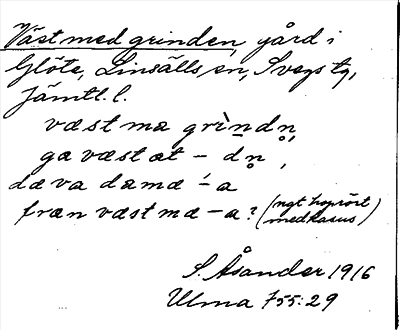 Väst med grinden, gård i
Glöte, Linsälls sn, Svegs tg,
Jämtl. l.
væst mæ grìndn̥,
ga væst at – dn̥,
dæva dæmæ ́– a
fræn væst mæ – a? (ngt hoprört
medkasus)
S. Åsander 1916
Ulma 755:29